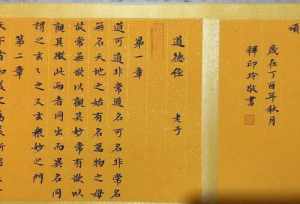 歲在丁酉年秋月
釋印玲敬書
道德经
老子
第一章
道可道非常道名可名非常名
無名天地之始有名萬物之母
故常無欲以觀其妙常有欲以
觀其徼此兩者同出而異名同
謂之玄之又玄衆妙之門
第二章